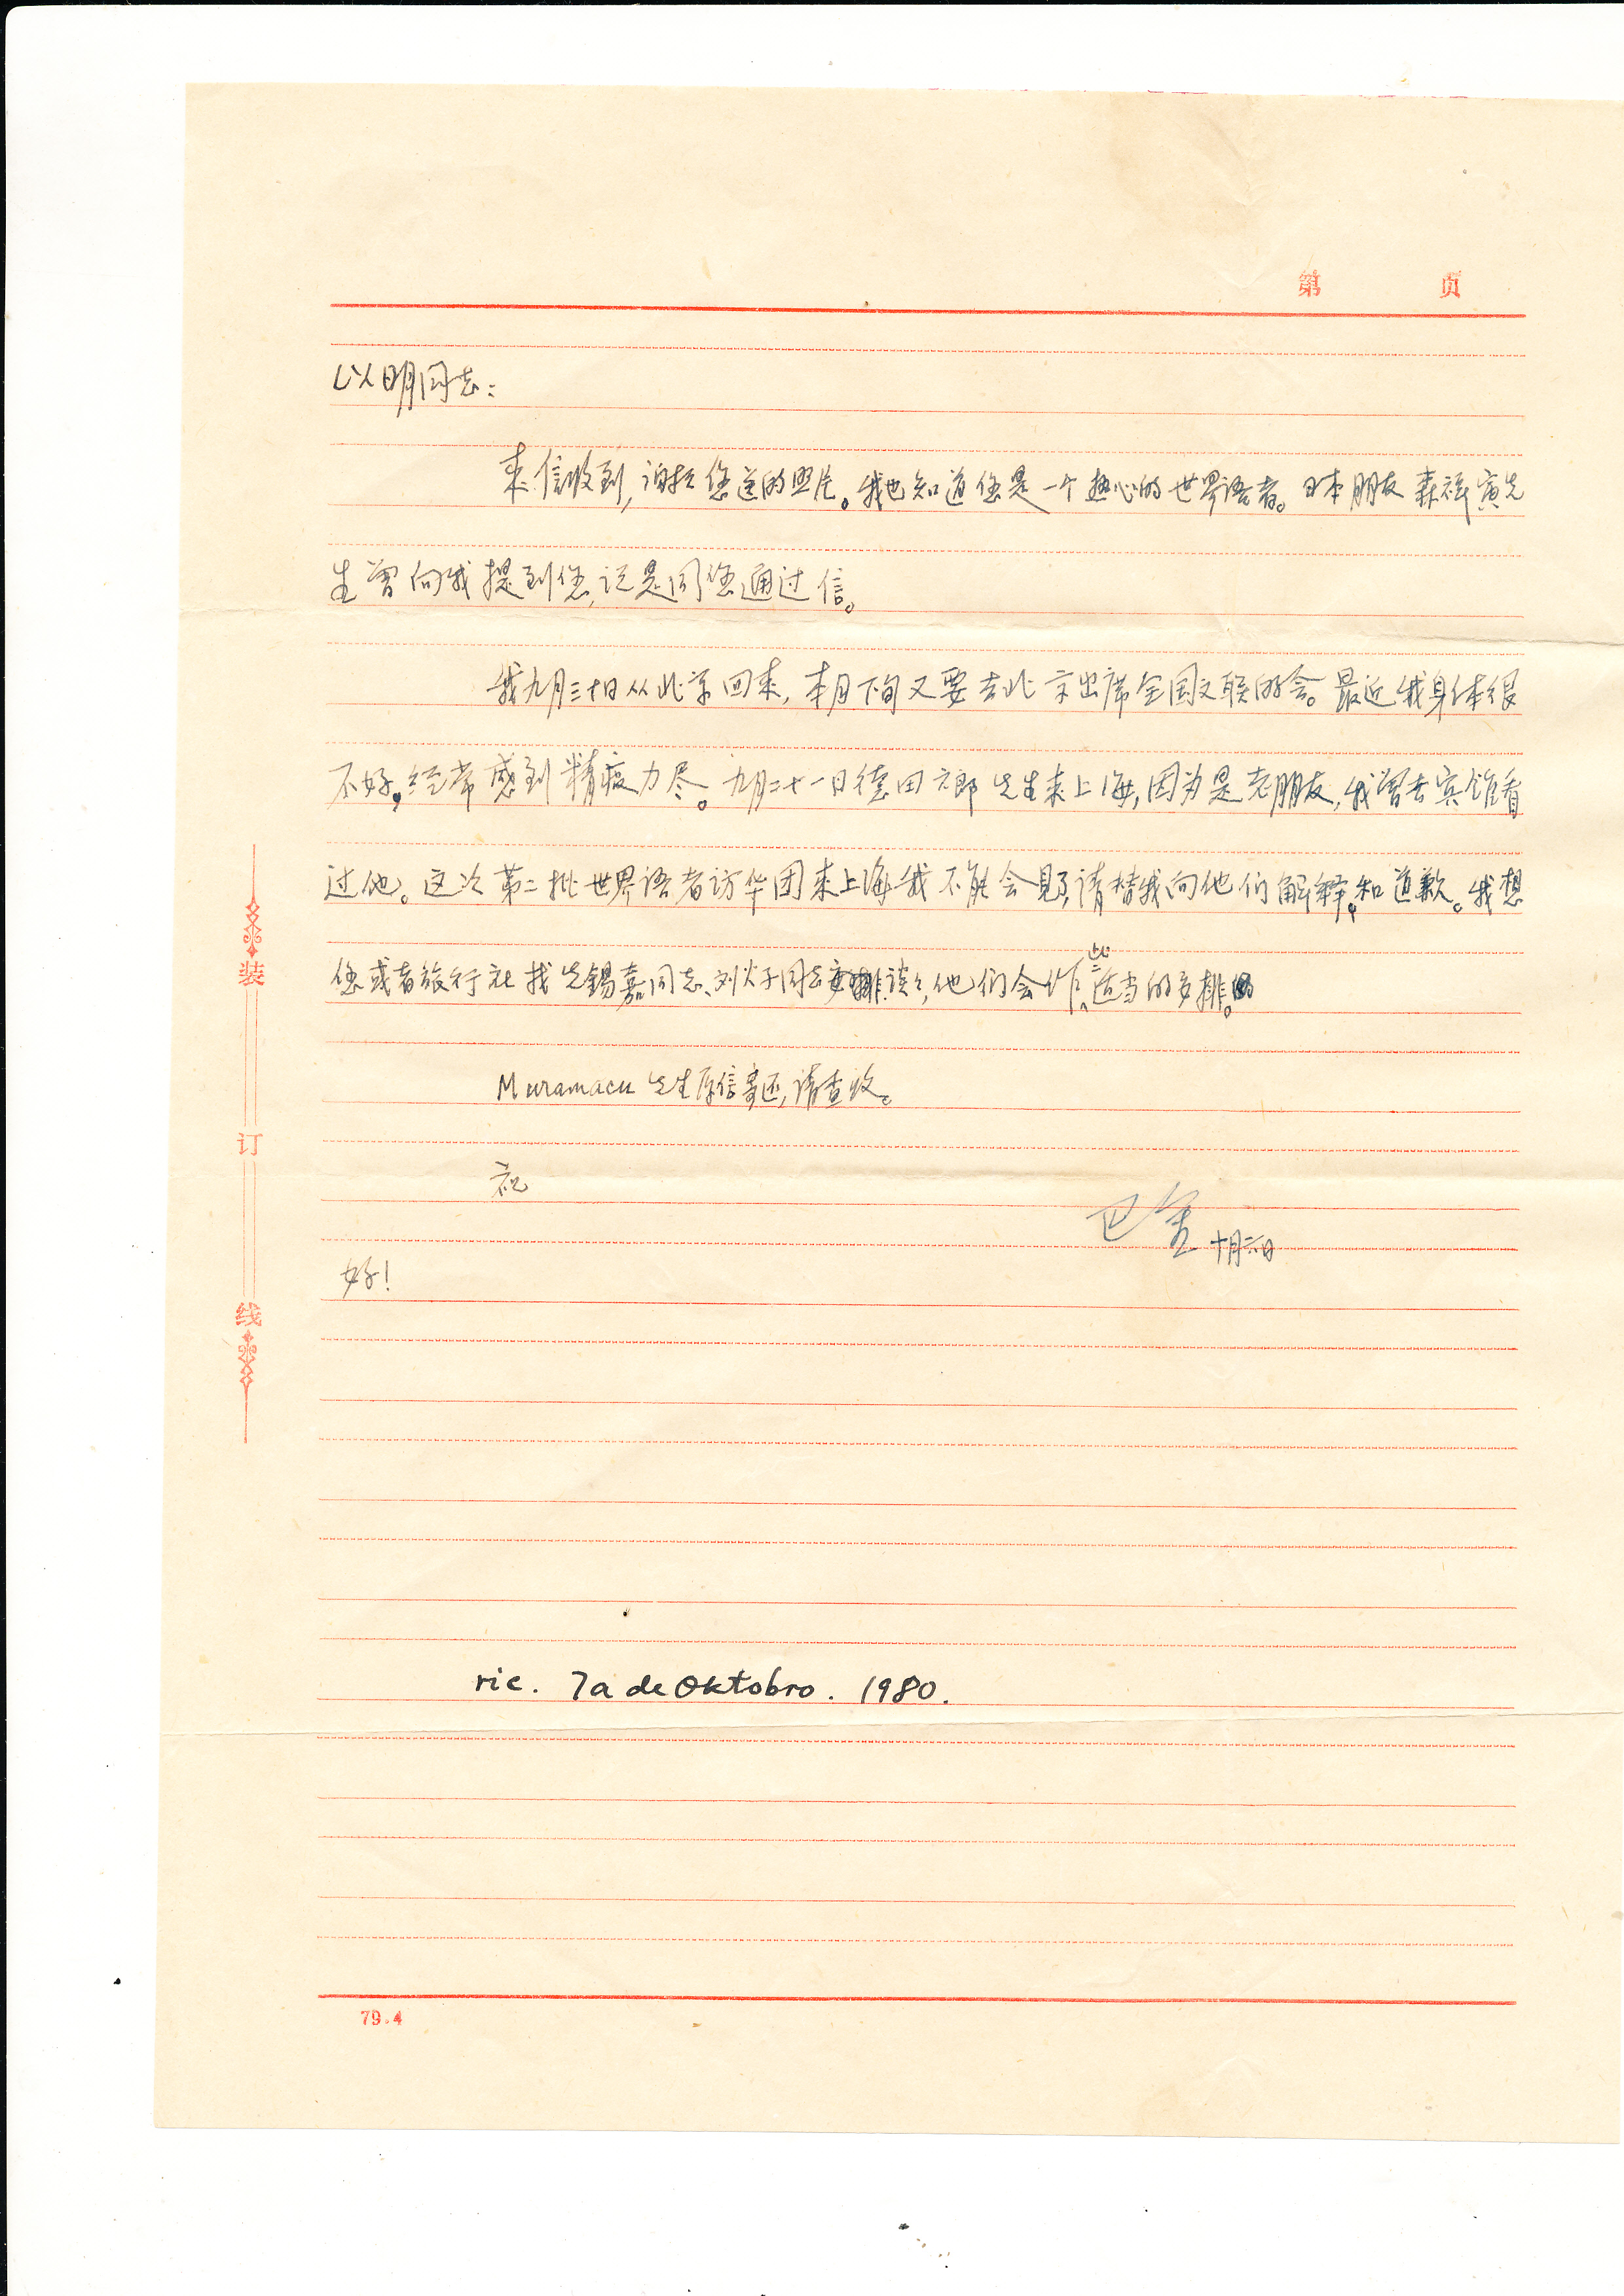 第 页
以明同志:
来信收到,谢谢您送的照片。我也知道您是一个热心的世界语者。日本朋友森祥寅先
生曾向我提到您,说是同您通过信。
我九月三十日从北京回来,本月下旬又要去北京出席全国文联的会。最近我身体很
不好,经常感到精疲力尽。九月二十一日德田六郎先生来上海,因为是老朋友,我曾去宾馆看
过他。这次第二批世界语者访华团来上海我不能会见了,请替我向他们解释,和道歉。我想
您或者旅行社找 锡嘉同志、刘火子同志 谈谈,他们会作些适当的安排。
Muramacu 先生原信寄还,请查收。
祝
巴金 十月六日
好!
ric. 7a de Oktobro. 1980.
装
订
线
79.4